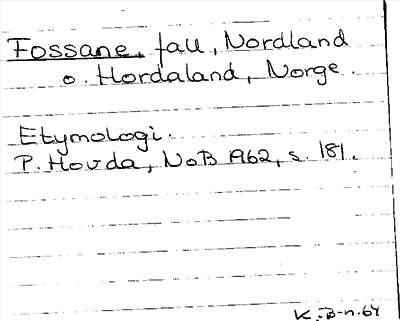 Fossane, fall, Nordland
o. Hordaland, Norge.
Etymologi.
P. Hovda, NoB 1962, s. 181.
K. B-n. 64